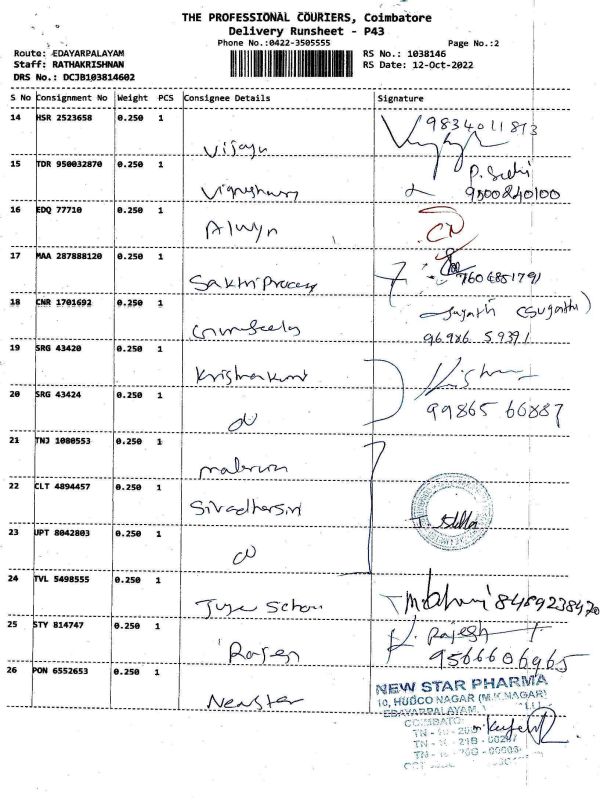 THE PROFESSIONAL COURIERS, Coimbatore
Delivery Runsheet - P43
Phone No.:0422-3505555
Page No.:2
Route: EDAYARPALAYAM
RS No.: 1038146
Staff: RATHAKRISHNAN
RS Date: 12-Oct-2022
DRS No.: DCJB103814602
S No Consignment No Weight PCS Consignee Details Signature
14 HSR 2523658 0.250 1
9834011813
Vijayu
15 TDR 950032870 0.250 1
Vigneshwary
9500240100
16 EDQ 77710 0.250 1
Alwyn
CN
17 MAA 287888120 0.250 1
Sakthi Process
7604851791
18 CNR 1701692 0.250 1
(Suganthi)
96986 59391
19 SRG 43420 0.250 1
Krishnakumar
20 SRG 43424 0.250 1
99865 66887
21 TNJ 1080553 0.250 1
22 CLT 4894457 0.250 1
Sivadharsini
23 UPT 8042803 0.250 1
24 TVL 5498555 0.250 1
8489238470
25 STY 814747 0.250 1
K. Rajesh
Rajesh
9566606965
26 PON 6552653 0.250 1
Newstar
NEW STAR PHARMA
10, HUDCO NAGAR (M.K.NAGAR)
EDAYARPALAYAM,